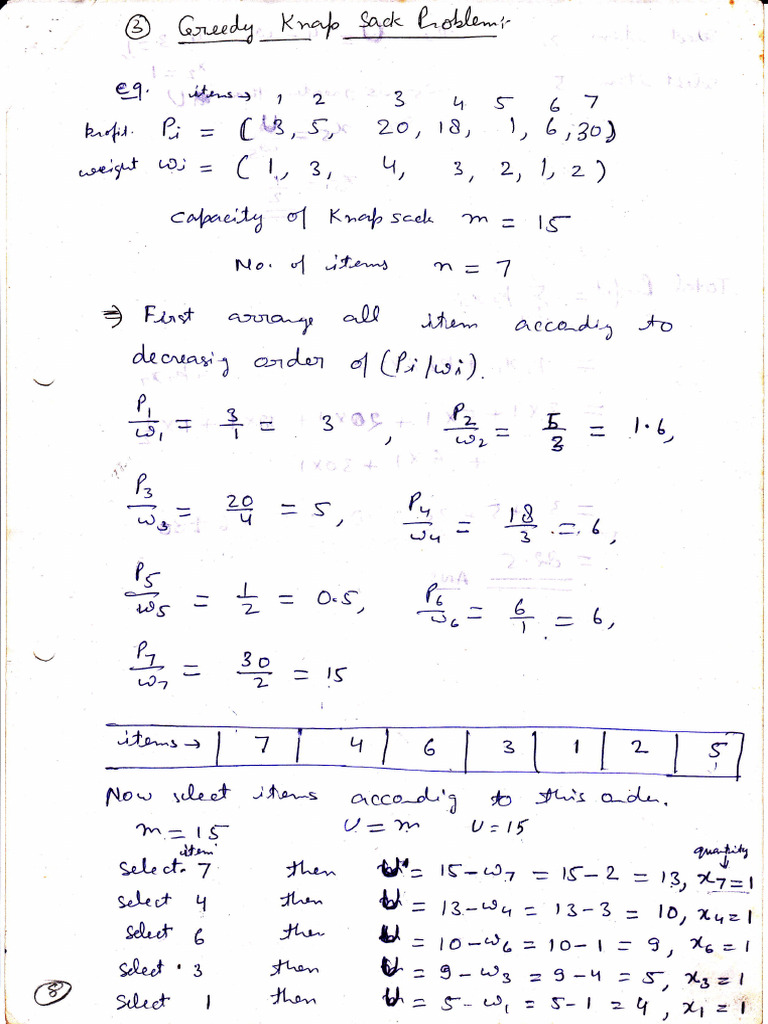 ③ Greedy Knap Sack Problem:-
eg. items→ 1 2 3 4 5 6 7
Profit. Pi = (3, 5, 20, 18, 1, 6, 30)
weight wi = (1, 3, 4, 3, 2, 1, 2)
Capacity of Knap sack m = 15
No. of items n = 7
⇒ First arrange all item accordig to
decreasig order of (Pi/wi).
P1/w1 = 3/1 = 3, P2/w2 = 5/3 = 1.6,
P3/w3 = 20/4 = 5, P4/w4 = 18/3 = 6,
P5/w5 = 1/2 = 0.5, P6/w6 = 6/1 = 6,
P7/w7 = 30/2 = 15
items→ | 7 | 4 | 6 | 3 | 1 | 2 | 5
Now select items accordig to this order.
m = 15 U = m U = 15
item quantity
select 7 then U = 15 - w7 = 15 - 2 = 13, x7 = 1
select 4 then U = 13 - w4 = 13 - 3 = 10, x4 = 1
select 6 then U = 10 - w6 = 10 - 1 = 9, x6 = 1
select 3 then U = 9 - w3 = 9 - 4 = 5, x3 = 1
select 1 then U = 5 - w1 = 5 - 1 = 4, x1 = 1
⑧